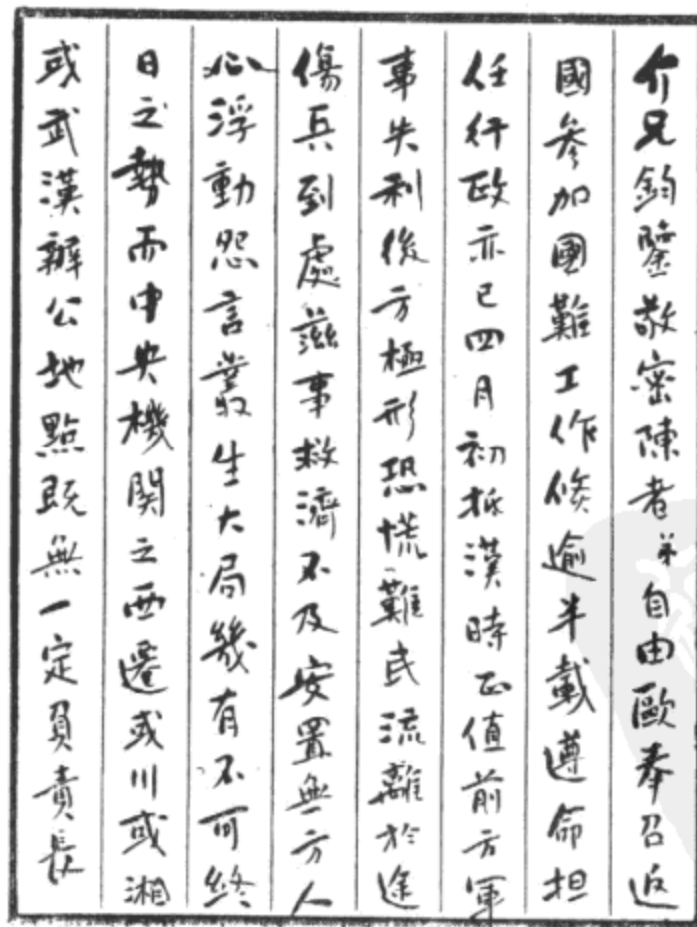 介兄鈞鑒敬密陳者弟自由歐奉召返
國參加國難工作倏逾半載遵命担
任行政亦已四月初抵漢時正值前方軍
事失利後方極形恐慌難民流離於途
傷兵到處滋事救濟不及安置無方人
心浮動怨言叢生大局幾有不可終
日之勢而中央機関之西遷或川或湘
或武漢辦公地點既無一定負責長